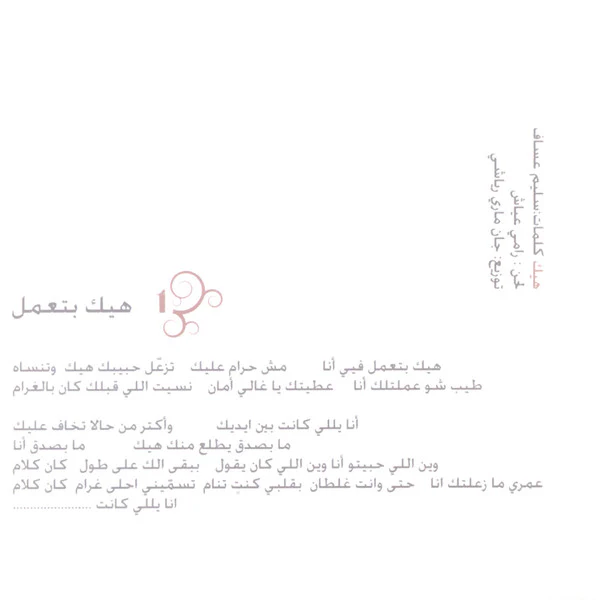 هيك كلمات:سليم عساف
لحن : رامي عياش
توزيع: جان ماري رياشي
1 هيك بتعمل
هيك بتعمل فيي أنا مش حرام عليك تزعّل حبيبك هيك وتنساه
طيب شو عملتلك أنا عطيتك يا غالي أمان نسيت اللي قبلك كان بالغرام
أنا يللي كانت بين ايديك وأكتر من حالا تخاف عليك
ما بصدق يطلع منك هيك ما بصدق أنا
وين اللي حبيتو أنا وين اللي كان يقول ببقى الك على طول كان كلام
عمري ما زعلتك انا حتى وانت غلطان بقلبي كنتِ تنام تسمّيني احلى غرام كان كلام
انا يللي كانت .......................